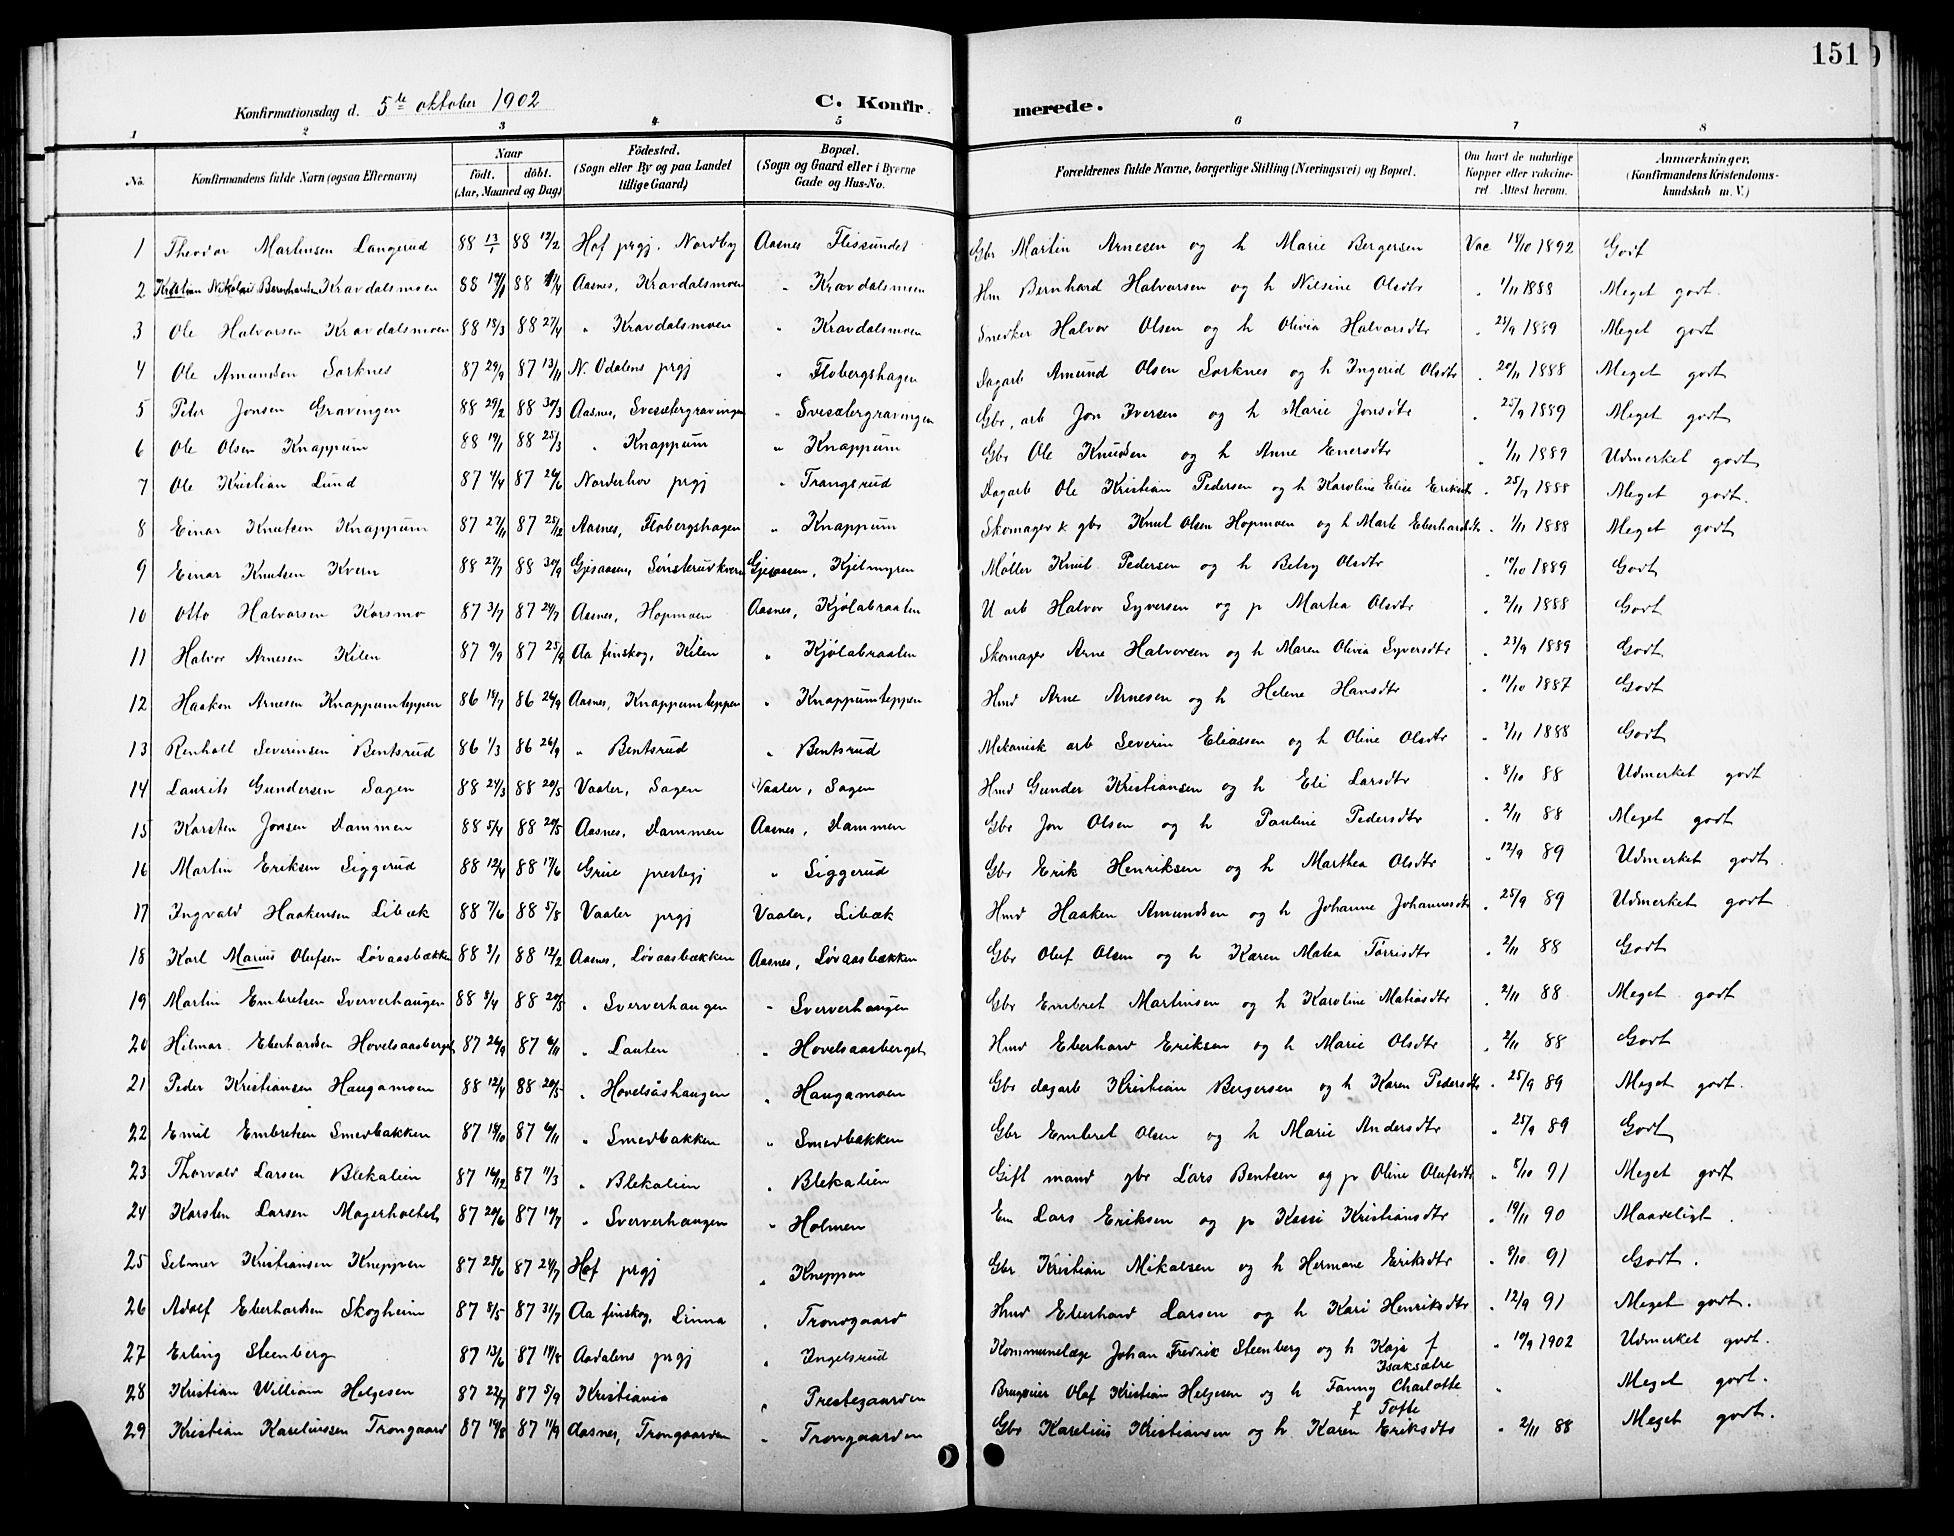 151
Konfirmationsdag d. 5te oktober 1902 C. Konfirmerede.
1 2 3 4 5 6 7 8
No. Konfirmandens fulde Navn (ogsaa Efternavn) Naar født. døbt. (Aar, Maaned og Dag) Fødested. (Sogn eller By og paa Landet tillige Gaard) Bopæl. (Sogn og Gaard eller i Byerne Gade og Hus-No. Forældrenes fulde Navne, borgerlige Stilling (Næringsvei) og Bopæl. Om havt de naturlige Kopper eller vakcineret Attest herom. Anmærkninger, (Konfirmandens Kristendomskundskab m. V.)
1 Theodor Martinsen Langerud 88 13/1 88 12/2 Hof prgj. Nordby Aasnes Flissundet Gbr Martin Arnesen og h Marie Bergersen Vac 18/10 1892 Godt
2 Kristian Nikolai Bernhardsen Kravdalsmoen 88 88 Aasnes, Kravdalsmoen " Kravdalsmoen Hm Bernhard Halvorsen og h Nilsine Olsdtr " 1/11 1888 Meget godt.
3 Ole Halvorsen Kravdalsmoen 88 18/3 88 27/4 " Kravdalsmoen " Kravdalsmoen Snedker Halvor Olsen og h Olivia Halvorsdtr " 25/9 1889 Meget godt
4 Ole Amundsen Sorknes 87 29/9 87 13/11 N. Odalens prgj " Flobergshagen Dagarb Amund Olsen Sorknes og h Ingerid Olsdtr " 20/11 1888 Meget godt
5 Peter Jonsen Gravingen 88 29/2 88 30/3 Aasnes, Svesætergravingen " Svesætergravingen Gbr, arb Jon Iversen og h Marie Jonsdtr " 25/9 1889 Meget godt
6 Ole Olsen Knappum 88 19/1 88 25/3 " Knappum " Knappum Gbr Ole Knudsen og h Anne Enersdtr " 1/11 1889 Udmerket godt
7 Ole Kristian Lund 87 4/4 87 26/6 Norderhov prgj " Trangsrud Dagarb Ole Kristian Pedersen og h Karoline Elise Eriksdt " 25/9 1888 Meget godt.
8 Einar Knutsen Knappum 87 27/11 87 25/12 Aasnes, Flobergshagen " Knappum Skomager & gbr Knut Olsen Hopmoen og h Marte Eberhardsdtr " 1/11 1888 Meget godt
9 Einar Knutsen Kvern 88 27/7 88 30/9 Gjesaasen, Sønsterudkvern Gjesaasen, Kjelmyren Møller Knut Pedersen og h Betsy Olsdtr " 10/10 1889 Godt
10 Otto Halvorsen Korsmo 87 3/7 87 24/7 Aasnes, Hopmoen Aasnes, Kjølabraaten U arb Halvor Syversen og p Martea Olsdtr " 2/11 1888 Godt
11 Halvor Arnesen Kilen 87 9/9 87 25/9 Aa finskog, Kilen " Kjølabraaten Skomager Arne Halvorsen og h Maren Olivia Syversdtr " 23/9 1889 Godt
12 Haaken Arnesen Knappumteppen 86 18/7 86 26/9 Aasnes, Knappumteppen " Knappumteppen Hmd Arne Arnesen og h Helene Hansdtr " 11/10 1887 Godt
13 Renholt Severinsen Bentsrud 86 1/3 86 26/9 " Bentsrud " Bentsrud Mekanisk arb Severin Eliassen og h Oline Olsdtr " 1/11 1888 Godt
14 Laurits Gundersen Sagen 88 24/3 88 20/5 Vaaler, Sagen Vaaler, Sagen Hmd Gunder Kristiansen og h Eli Larsdtr " 8/10 88 Udmerket godt
15 Karsten Jonsen Dammen 88 5/4 88 20/5 Aasnes, Dammen Aasnes, Dammen Gbr Jon Olsen og h Pauline Pedersdtr " 2/11 88 Meget godt
16 Martin Eriksen Siggerud 88 12/4 88 17/6 Grue prestegj " Siggerud Gbr Erik Henriksen og h Marthea Olsdtr " 12/9 89 Udmerket godt
17 Ingvald Haakensen Libæk 88 7/6 88 5/8 Vaaler prgj Vaaler, Libæk Hmd Haaken Amundsen og h Johanne Johannesdtr " 25/9 89 Udmerket godt
18 Karl Marius Olufsen Løvaasbækken 88 3/1 88 12/2 Aasnes, Løvaasbækken Aasnes, Løvaasbækken Gbr Oluf Olsen og h Karen Matea Tørrisdtr " 2/11 88 Godt
19 Martin Embretsen Sververhaugen 88 8/4 88 20/5 " Sververhaugen " Sververhaugen Gbr Embret Martinsen og h Karoline Matiasdtr " 2/11 88 Meget godt
20 Hilmar Eberhardsen Hovelsaasberget 87 26/9 87 6/11 " Lauten " Hovelsaasberget Hmd Eberhard Eriksen og h Marie Olsdtr " 2/11 88 Godt
21 Peder Kristiansen Haugamoen 88 12/4 88 20/5 " Hovelsåshaugen " Haugamoen Gbr dagarb Kristian Bergersen og h Karen Pedersdtr " 25/9 89 Meget godt.
22 Emil Embretsen Smedbakken 87 18/10 87 6/11 " Smedbakken " Smedbakken Gbr Embret Olsen og h Marie Andersdtr " 25/9 89 Godt
23 Thorvald Larsen Blekalien 87 16/12 87 11/3 " Blekalien " Blekalien Gift mand gbr Lars Bentsen og p Oline Olufsdtr " 8/10 91 Meget godt
24 Karsten Larsen Magerholtet 87 20/6 87 10/7 " Sververhaugen " Holmen Em Lars Eriksen og p Kristiansdtr " 19/11 90 Maadeligt.
25 Selmer Kristiansen Kneppen 87 25/6 87 24/7 Hof prgj " Kneppen Gbr Kristian Mikalsen og h Hermane Eriksdtr " 8/10 91 Godt.
26 Adolf Eberhardsen Skogheim 87 8/5 87 31/7 Aa finskog, Linna " Tronogaard Hmd Eberhard Larsen og h Kari Henriksdtr " 12/9 91 Meget godt.
27 Erling Steenberg 87 13/6 87 17/8 Aadalens prgj " Ingelsrud Kommunelæge Johan Fredrik Steenberg og h Kaja f Isaksætre " 10/9 1902 Udmerket godt.
28 Kristian William Helgesen 87 22/7 87 5/9 Kristiania " Prestegaarden Brugseier Olaf Kristian Helgesen og h Fanny Charlotte f Tofte " Meget godt.
29 Kristian Kareliussen Trongaard 87 10/8 87 11/9 Aasnes, Trongaarden " Trongaarden Gbr Karelius Kristiansen og h Karen Eriksdtr " 2/11 88 Meget godt.